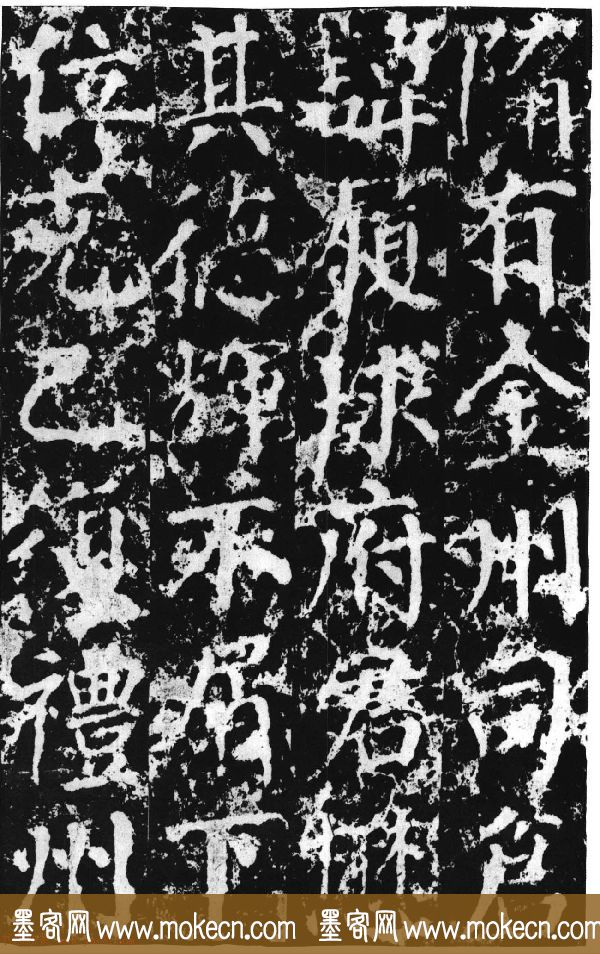 有金州司
諱球府君
其德輝不屑下
位克己復禮州
墨客网 www.mokecn.com 墨客网 www.mokecn.com